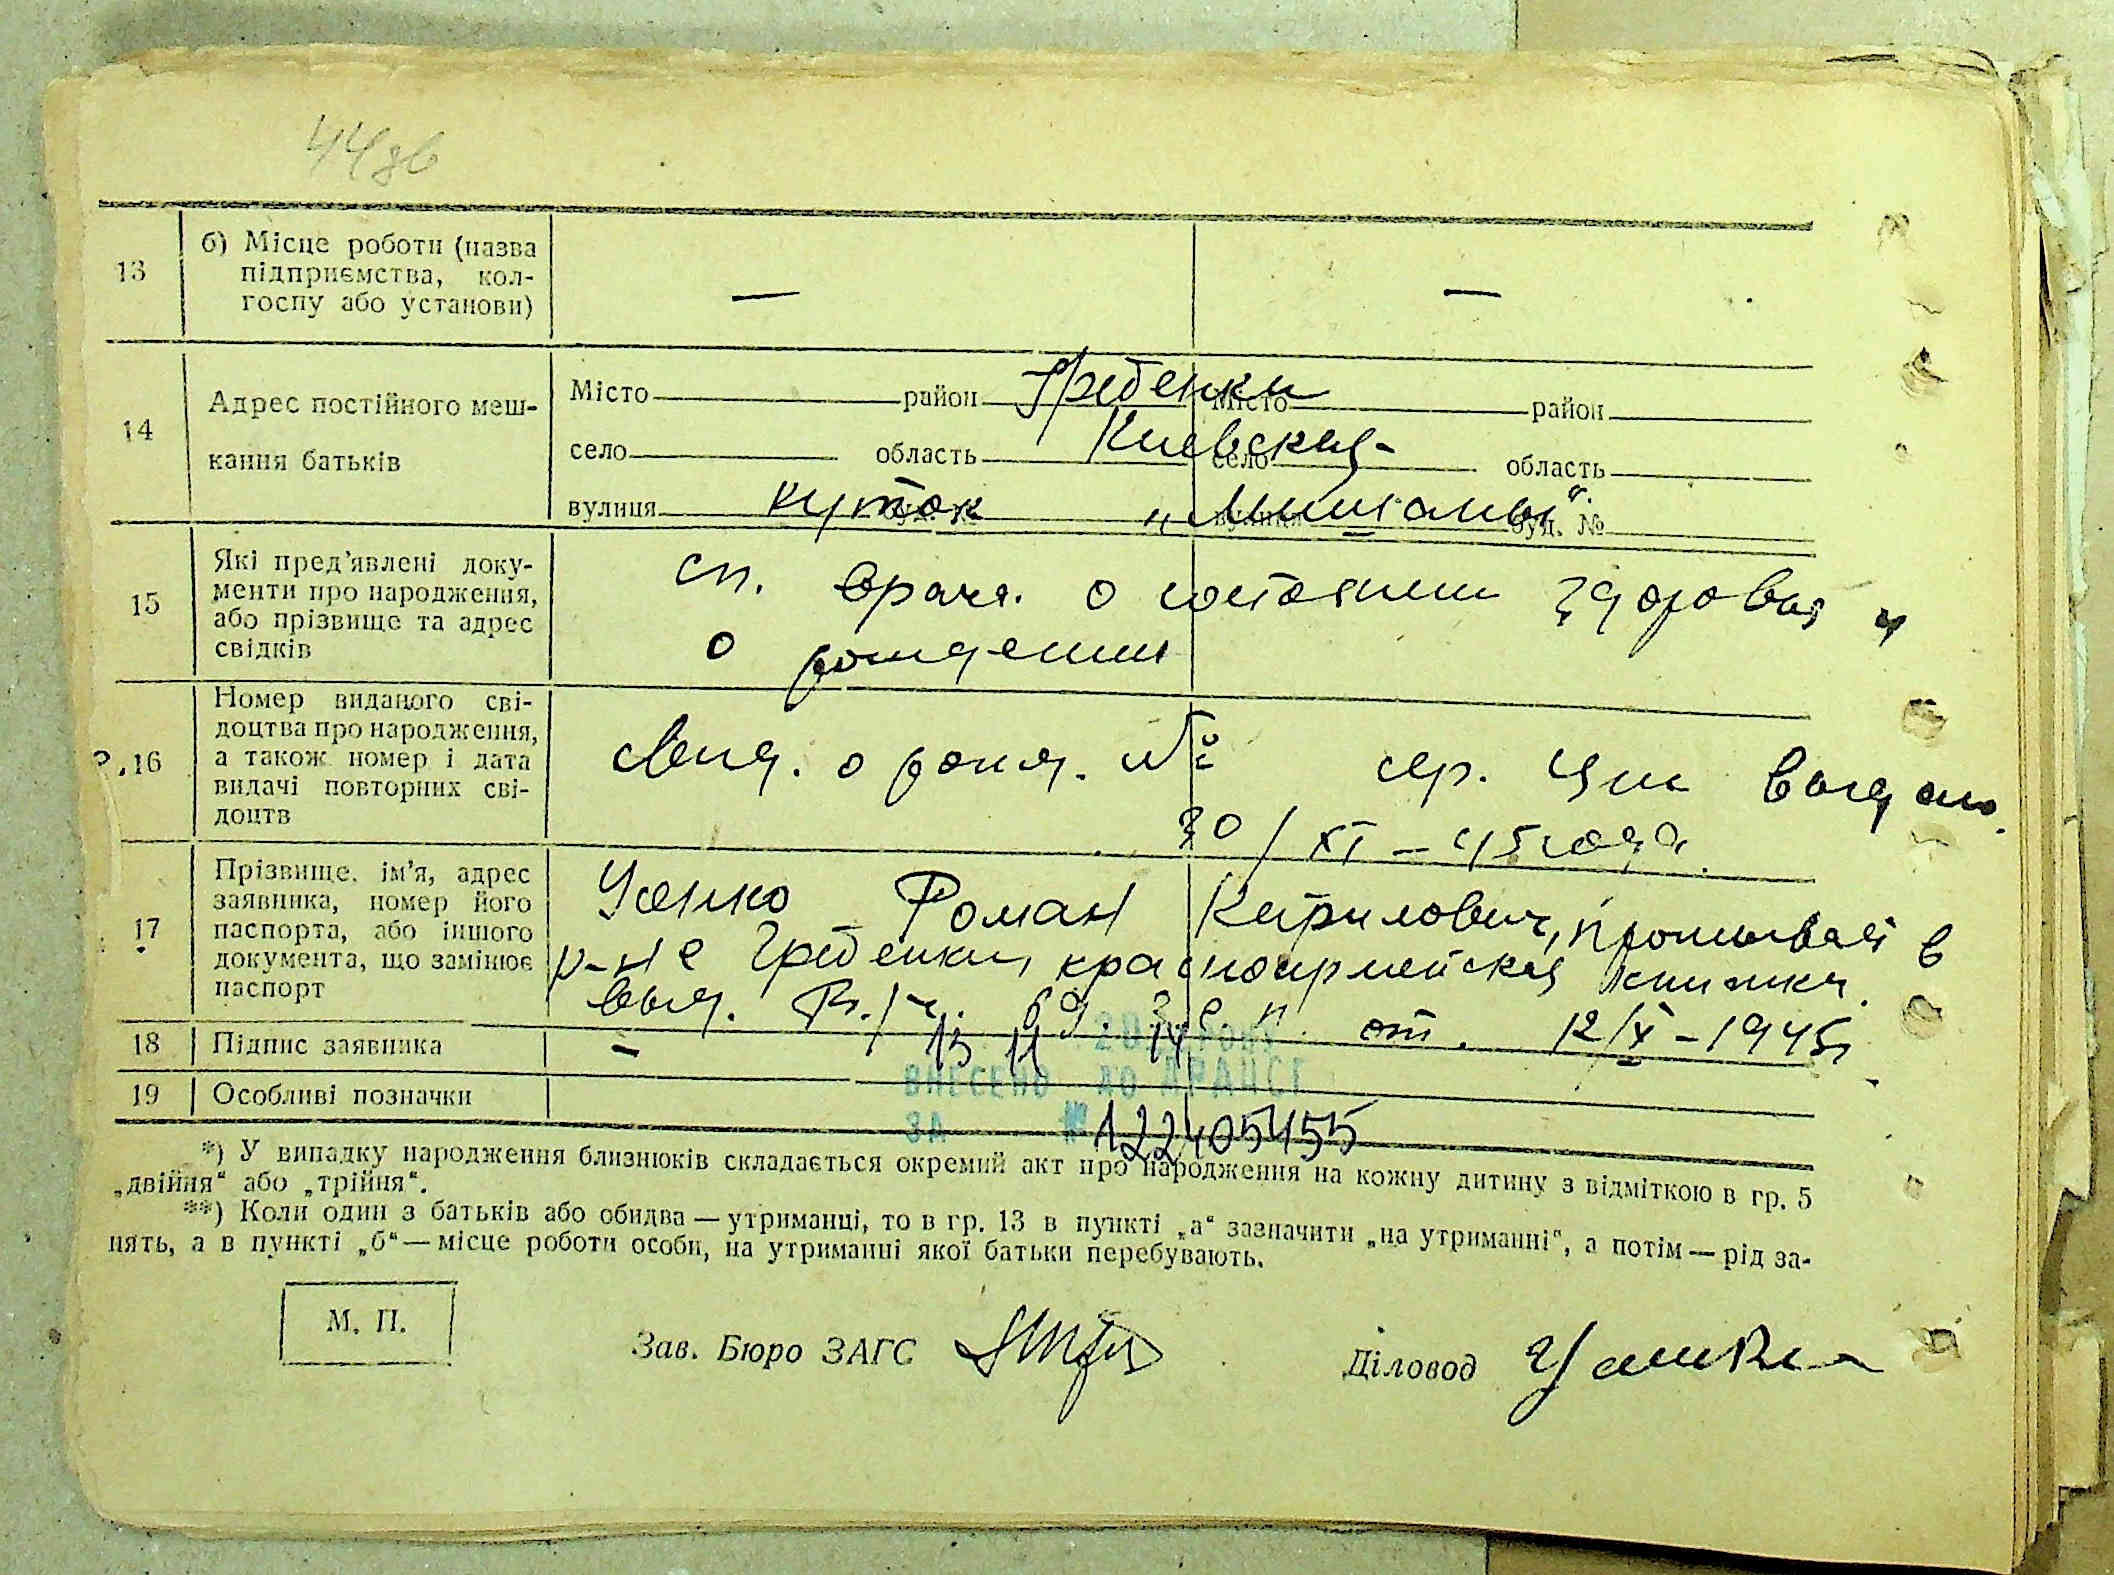 44зв
13 б) Місце роботи (назва підприємства, колгоспу або установи) — —
14 Адрес постійного мешкання батьків
Місто район Гребенки Місто район
село область Киевская село область
вулиця куток буд. № „Мишталы“. вулиця буд. №
15 Які пред’явлені документи про народження, або прізвище та адрес свідків
сп. врача о состоянии здоровья и
о рождении
16 Номер виданого свідоцтва про народження, а також номер і дата видачі повторних свідоцтв
свид. о рожд. № сер. ЦИ выдано.
30/XI – 45 года.
17 Прізвище, ім’я, адрес заявника, номер його паспорта, або іншого документа, що замінює паспорт
Усенко Роман Кирилович, проживает в
р-не Гребенки, красноармейская книжка.
выд. В/ч. от. 12/X – 1945
18 Підпис заявника –
13 11 2014 РОКУ
19 Особливі позначки
ВНЕСЕНО ДО ДРАЦСГ
ЗА № 122405455
*) У випадку народження близнюків складається окремий акт про народження на кожну дитину з відміткою в гр. 5
„двійня“ або „трійня“.
**) Коли один з батьків або обидва — утриманці, то в гр. 13 в пункті „а“ зазначити „на утриманні“, а потім — рід за-
нять, а в пункті „б“ — місце роботи особи, на утриманні якої батьки перебувають.
М. П.
Зав. Бюро ЗАГС
Діловод